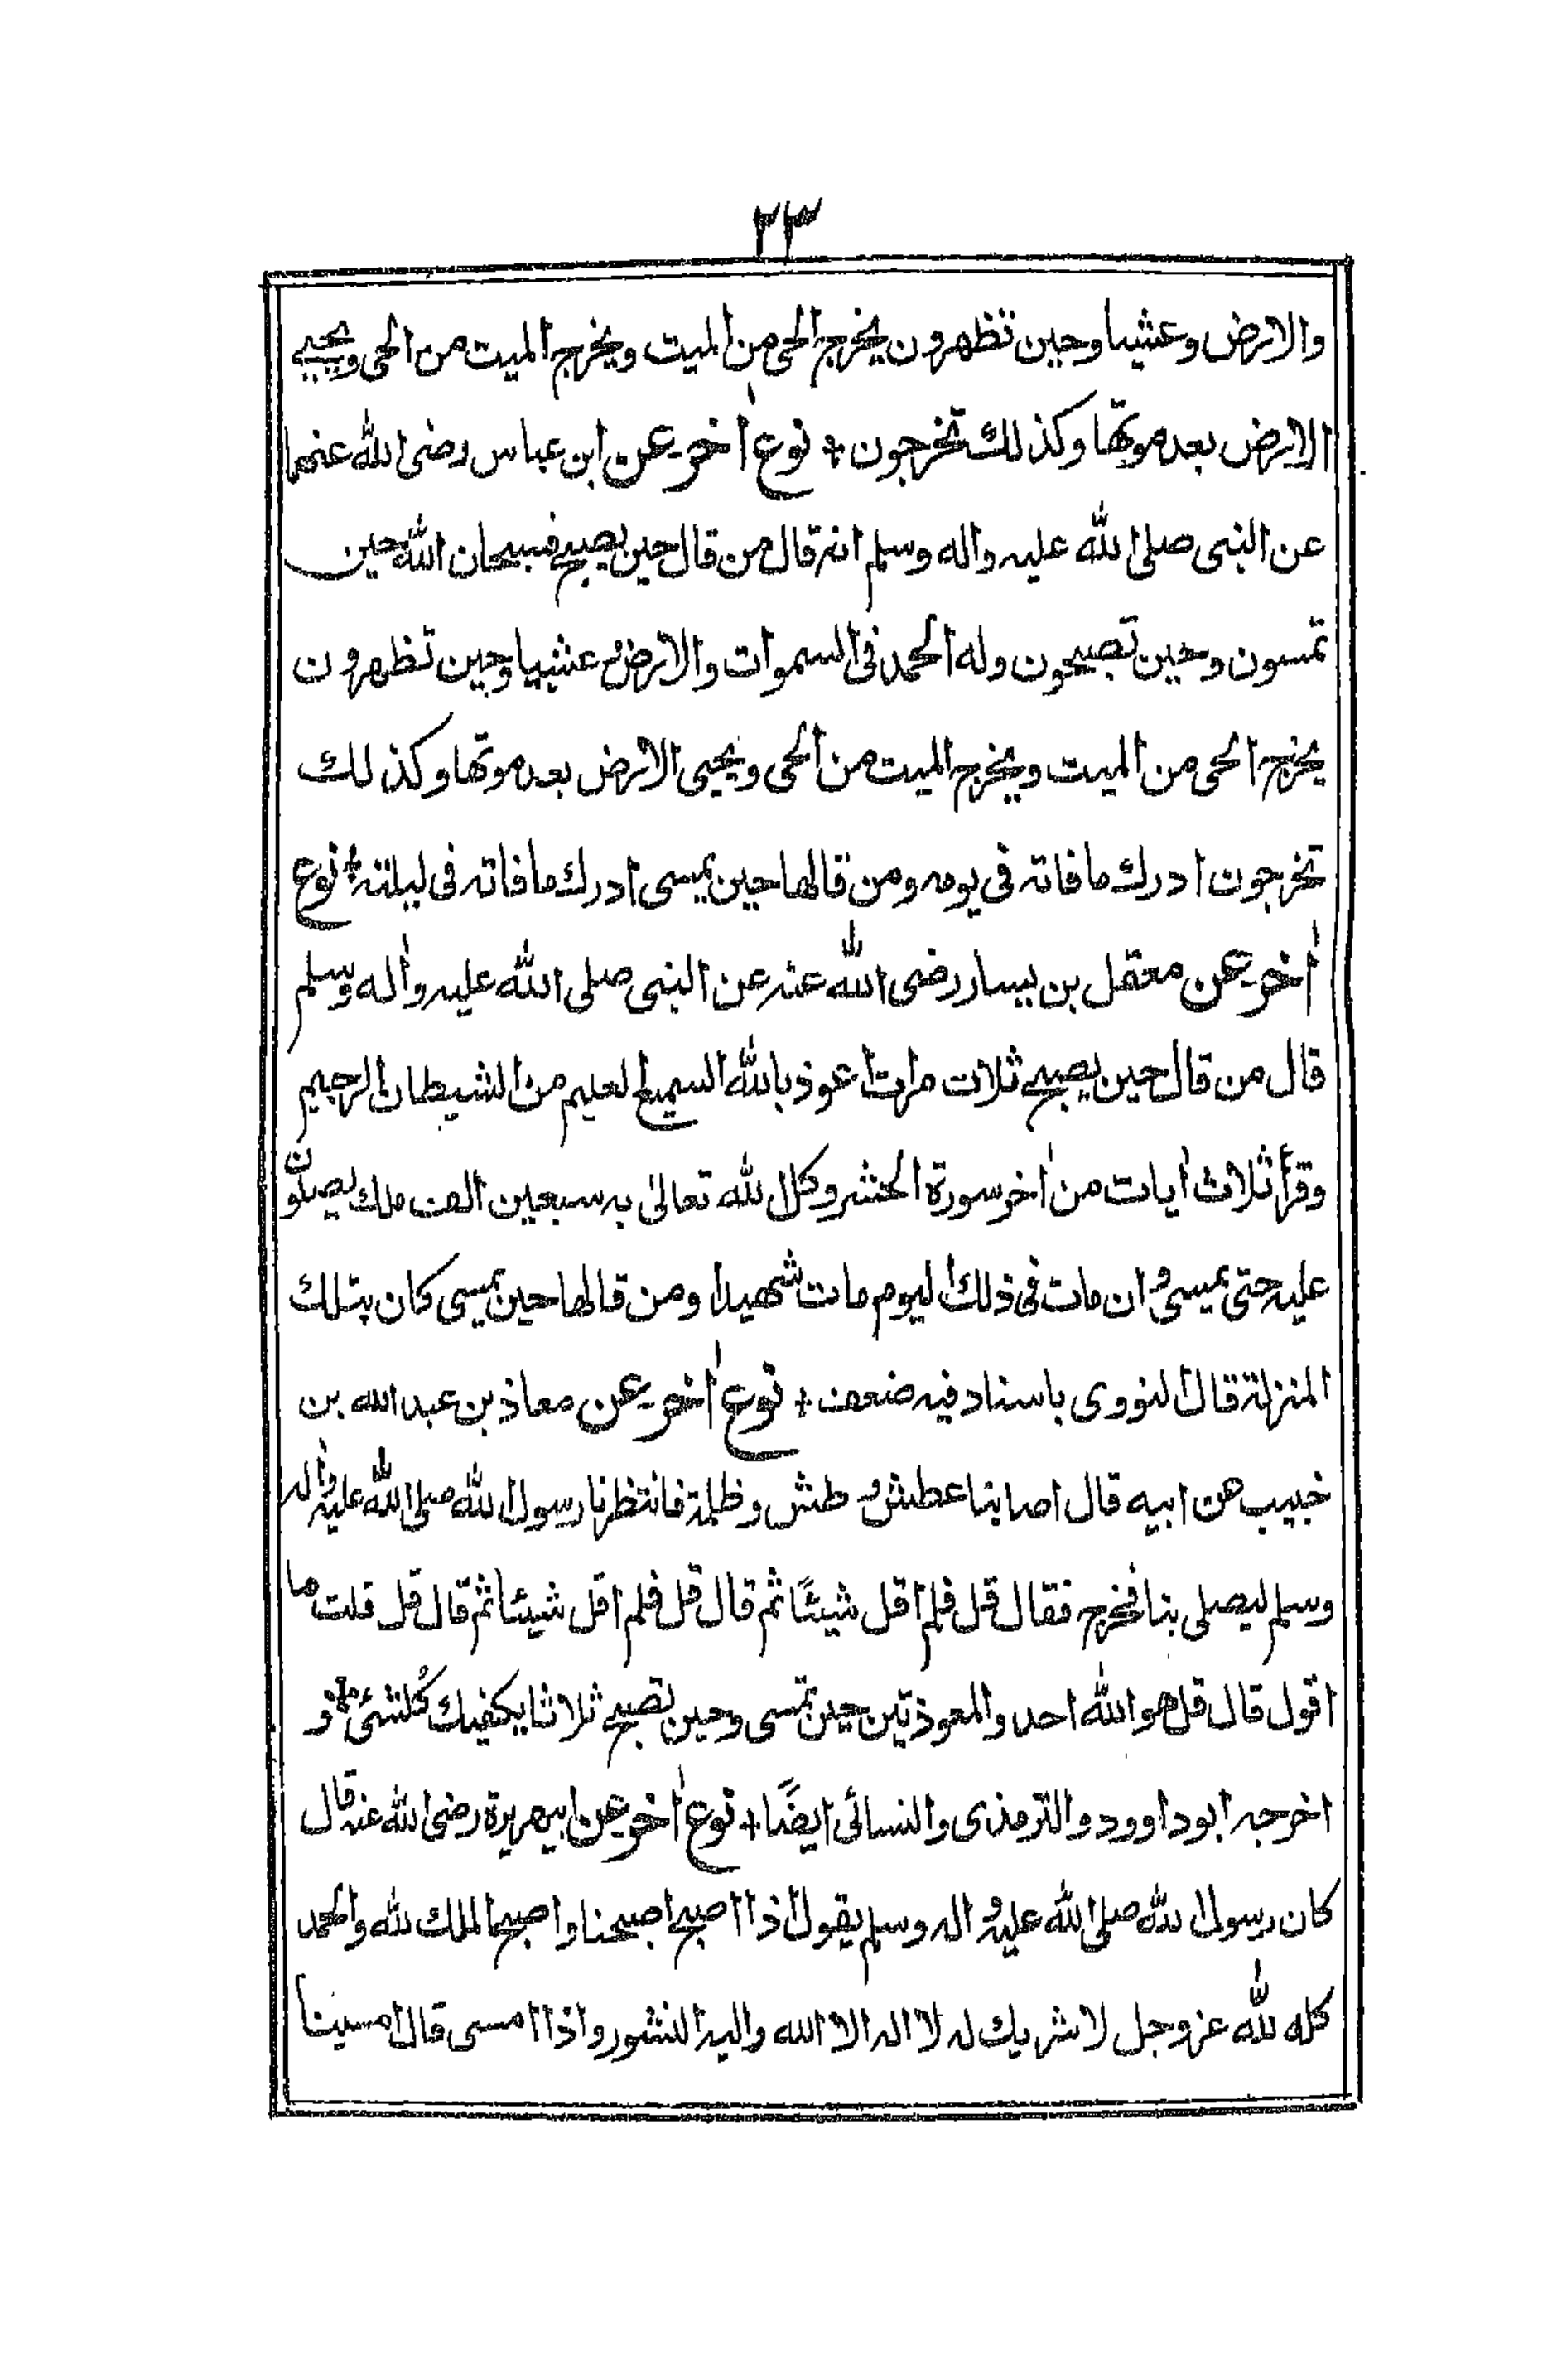 ٢٣
والارض وعشيا وحين تظهرون يخرج الحى من الميت ويخرج الميت من الحى ويحيى
الارض بعد موتها وكذلك تخرجون + نوع اٰخر عن ابن عباس رضى الله عنهما
عن النبى صلى الله عليه واله وسلم انه قال من قال حين يصبح فسبحان الله حين
تمسون وحين تصبحون وله الحمد فى السموات والارض وعشيا وحين تظهرون
يخرج الحى من الميت ويخرج الميت من الحى ويحيى الارض بعد موتها وكذلك
تخرجون ادرك ما فاته فى يومه ومن قالها حين يمسى ادرك ما فاته فى ليلته + نوع
اٰخر عن معقل بن يسار رضى الله عنه عن النبى صلى الله عليه واٰله وسلم
قال من قال حين يصبح ثلاث مرات اعوذ بالله السميع العليم من الشيطان الرجيم
وقرأ ثلاث اٰيات من اٰخر سورة الحشر وكل الله تعالىٰ به سبعين الف ملك يصلون
عليه حتى يمسى وان مات فى ذلك اليوم مات شهيدا ومن قالها حين يمسى كان بتلك
المنزلة قال النووى باسناد فيه ضعف + نوع اٰخر عن معاذ بن عبد الله بن
خبيب عن ابيه قال اصابنا عطش و طش وظلمة فانتظرنا رسول الله صلى الله عليه واٰله
وسلم ليصلى بنا فخرج فقال قل فلم اقل شيئًا ثم قال قل فلم اقل شيئا ثم قال قل قلت ما
اقول قال قل هو الله احد والمعوذتين حين تمسى وحين تصبح ثلاثا يكفيك كُلشئ و
اخرجه ابو داوود والترمذى والنسائى ايضًا + نوع اٰخر عن ابيهريرة رضى الله عنه قال
كان رسول الله صلى الله عليه واله وسلم يقول اذا اصبح اصبحنا واصبح الملك لله والحمد
كله لله عز وجل لا شريك له لا اله الا الله واليه النشور واذا امسى قال امسينا